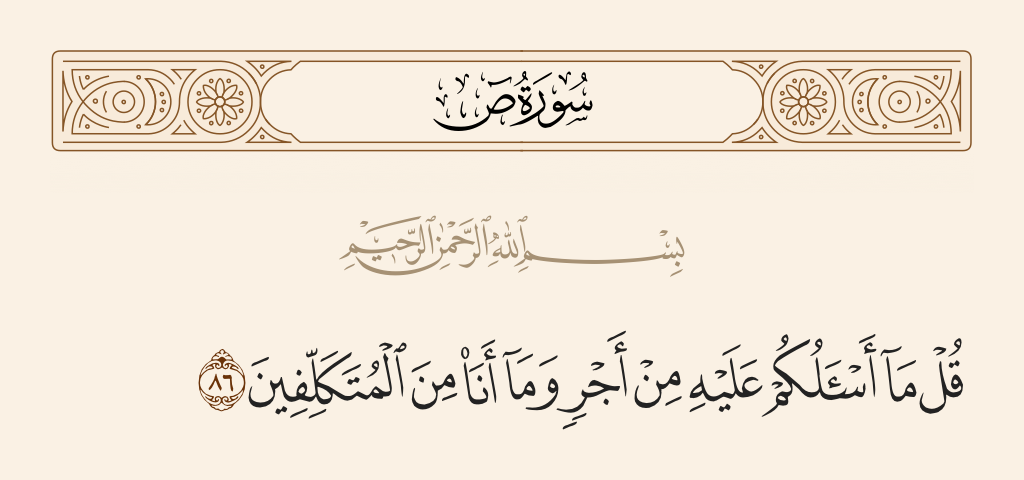 سُورَةُ صٓ
بِسۡمِ ٱللَّهِ ٱلرَّحۡمَٰنِ ٱلرَّحِيمِ
قُلۡ مَآ أَسۡـَٔلُكُمۡ عَلَيۡهِ مِنۡ أَجۡرٖ وَمَآ أَنَا۠ مِنَ ٱلۡمُتَكَلِّفِينَ ٨٦